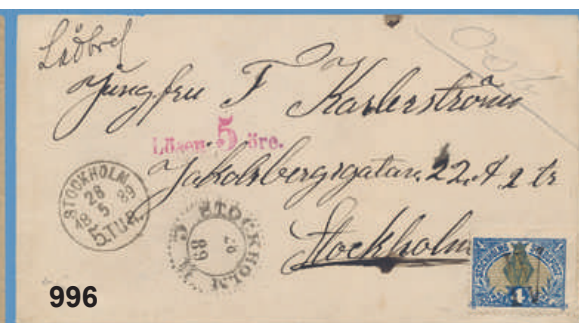 Lådbref
Jungfru F Karlerström
Lösen 5 öre.
Jakobsbergsgatan 22 A 2 tr
Stockholm
STOCKHOLM
28
18 5 89
5.TUR.
STOCKHOLM
89
4
996